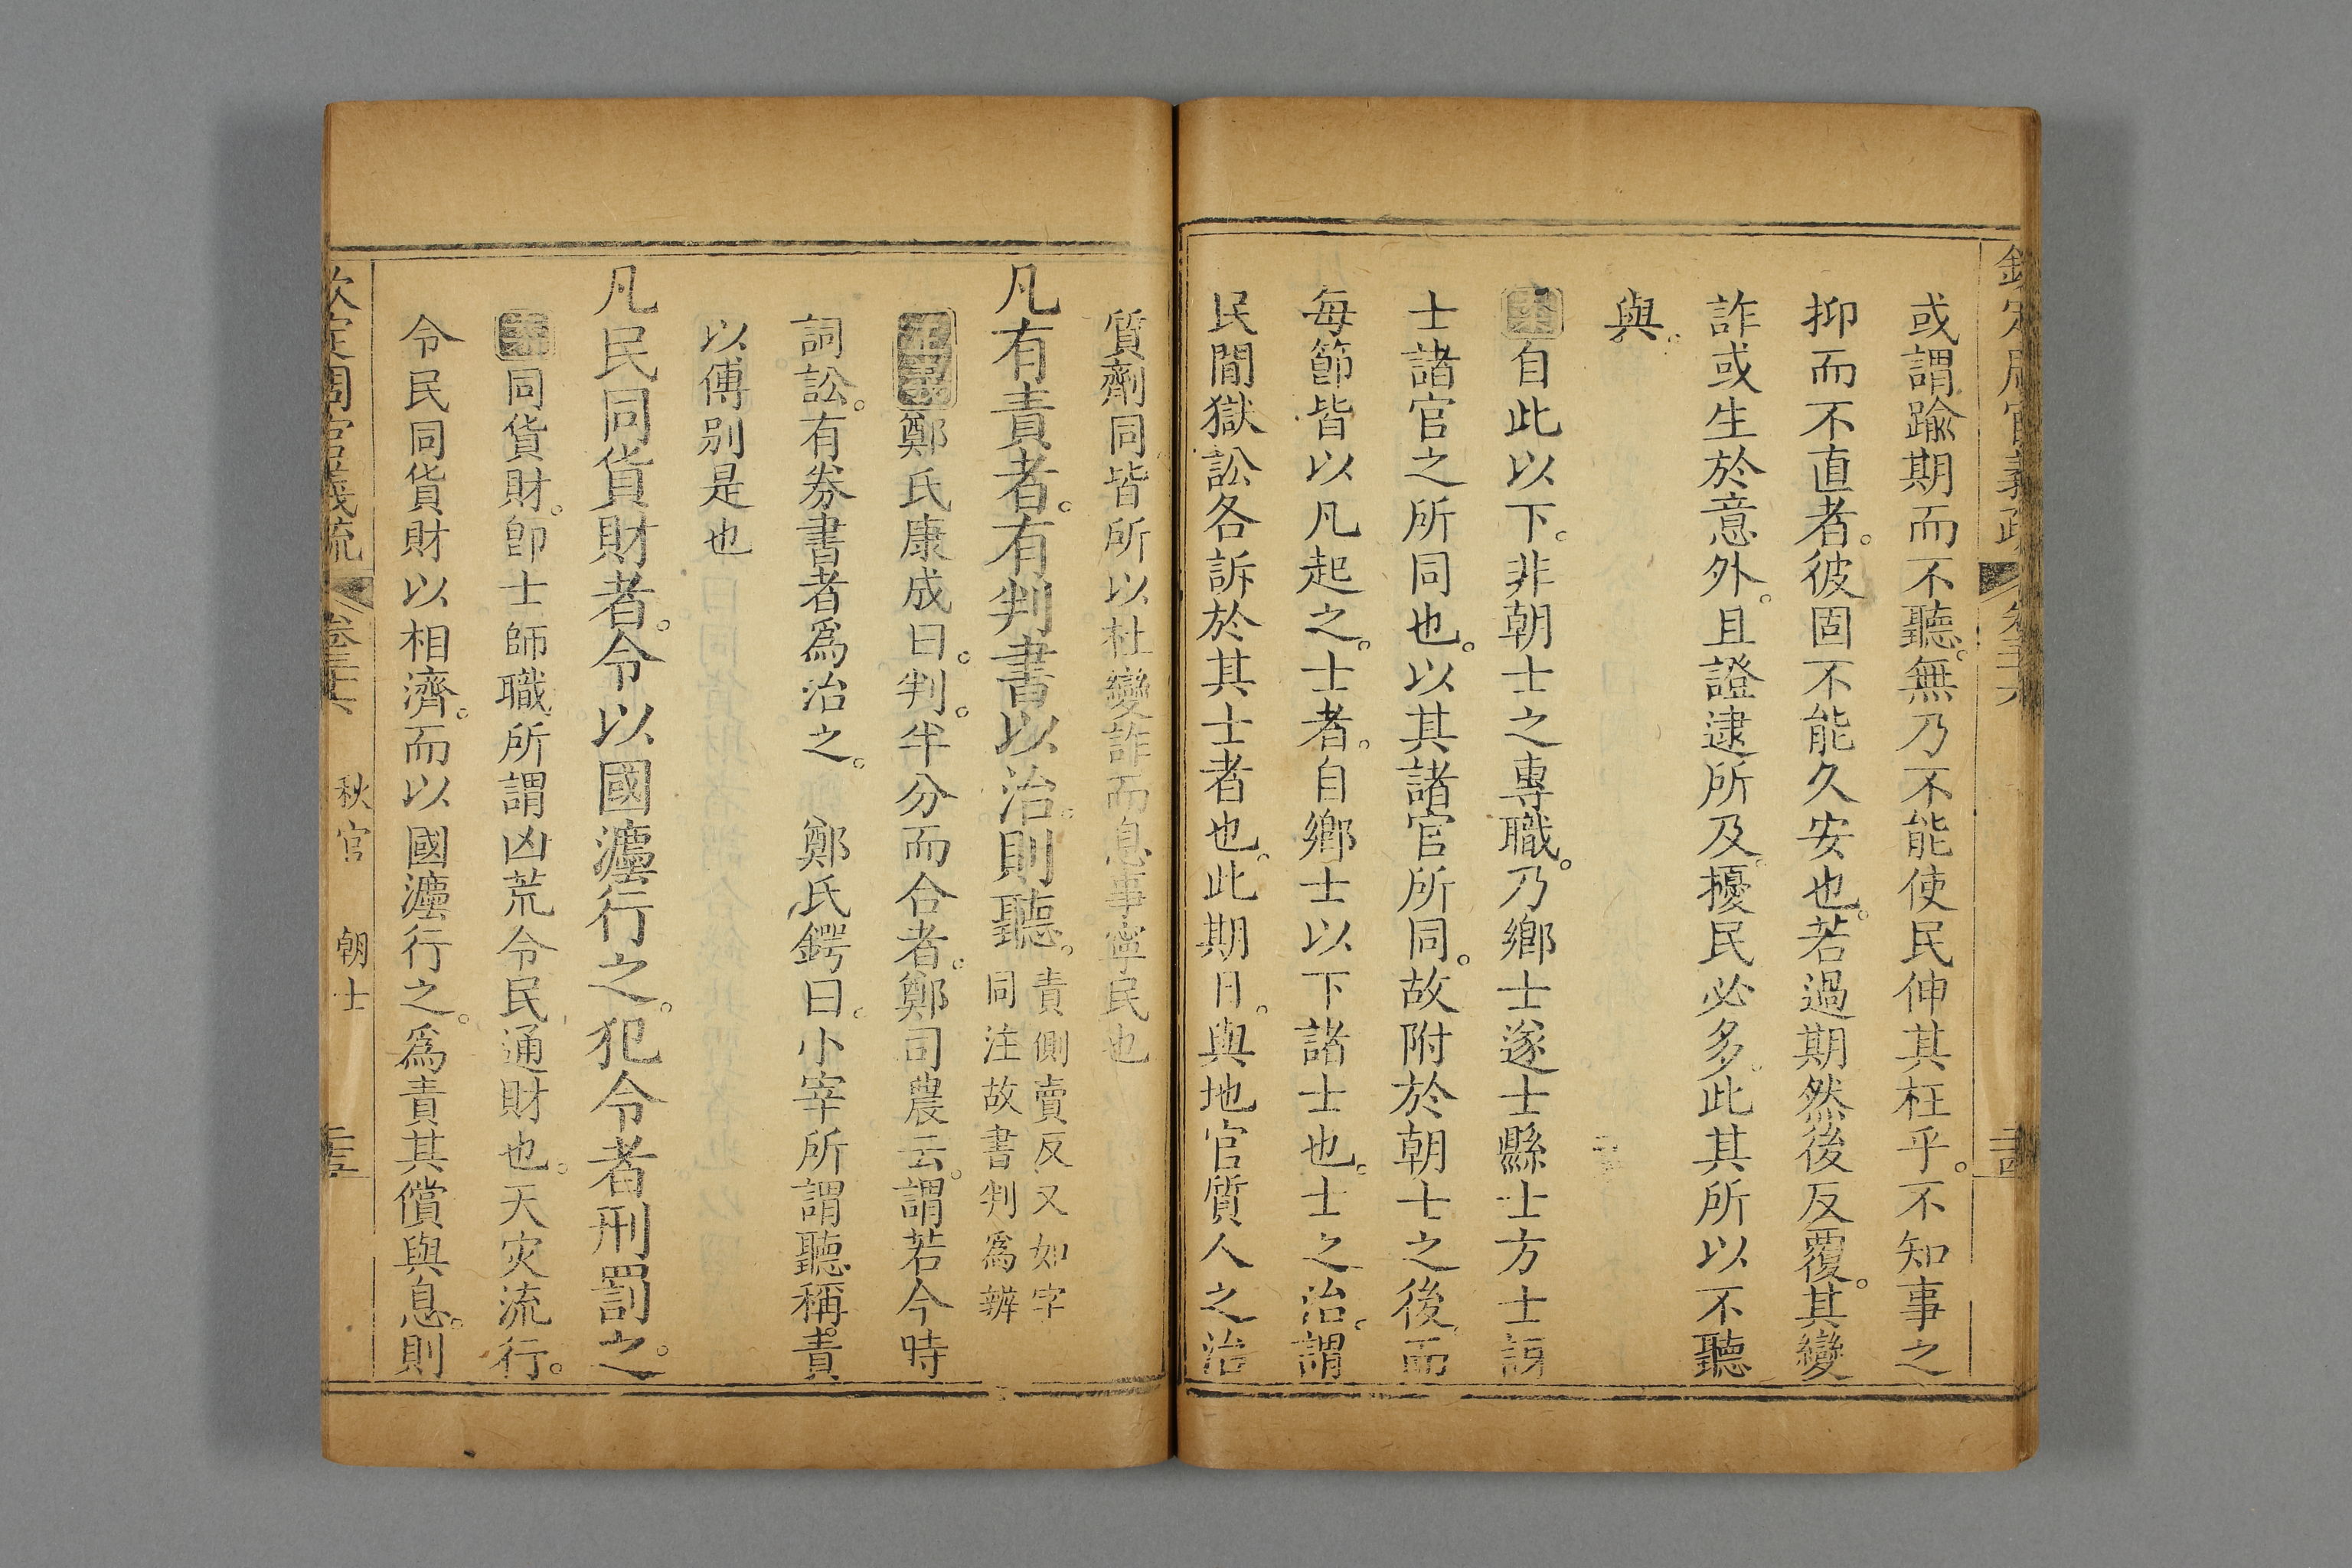 或謂踰期而不聽。無乃不能使民伸其枉乎。不知事之
抑而不直者。彼固不能久安也。若過期然後反覆。其變
詐或生於意外。且證逮所及。擾民必多。此其所以不聽
與。
案自此以下。非朝士之專職。乃鄉士遂士縣士方士訝
士諸官之所同也。以其諸官所同。故附於朝士之後。而
每節皆以凡起之。士者。自鄉士以下諸士也。士之治。謂
民間獄訟各訴於其士者也。此期日。與地官質人之治
質劑同皆所以杜變詐而息事寧民也
凡有責者。有判書以治。則聽。責側賣反又如字
同注故書判爲辨
鄭氏康成曰。判。半分而合者。鄭司農云。謂若今時
詞訟。有券書者爲治之。 鄭氏鍔曰。小宰所謂聽稱責
以傅別是也
凡民同貨財者。令以國灋行之。犯令者刑罰之。
同貨財。卽士師職所謂凶荒令民通財也。天灾流行。
令民同貨財以相濟。而以國灋行之。爲責其償與息。則
欽定周官義疏 卷三十六 秋官 朝士